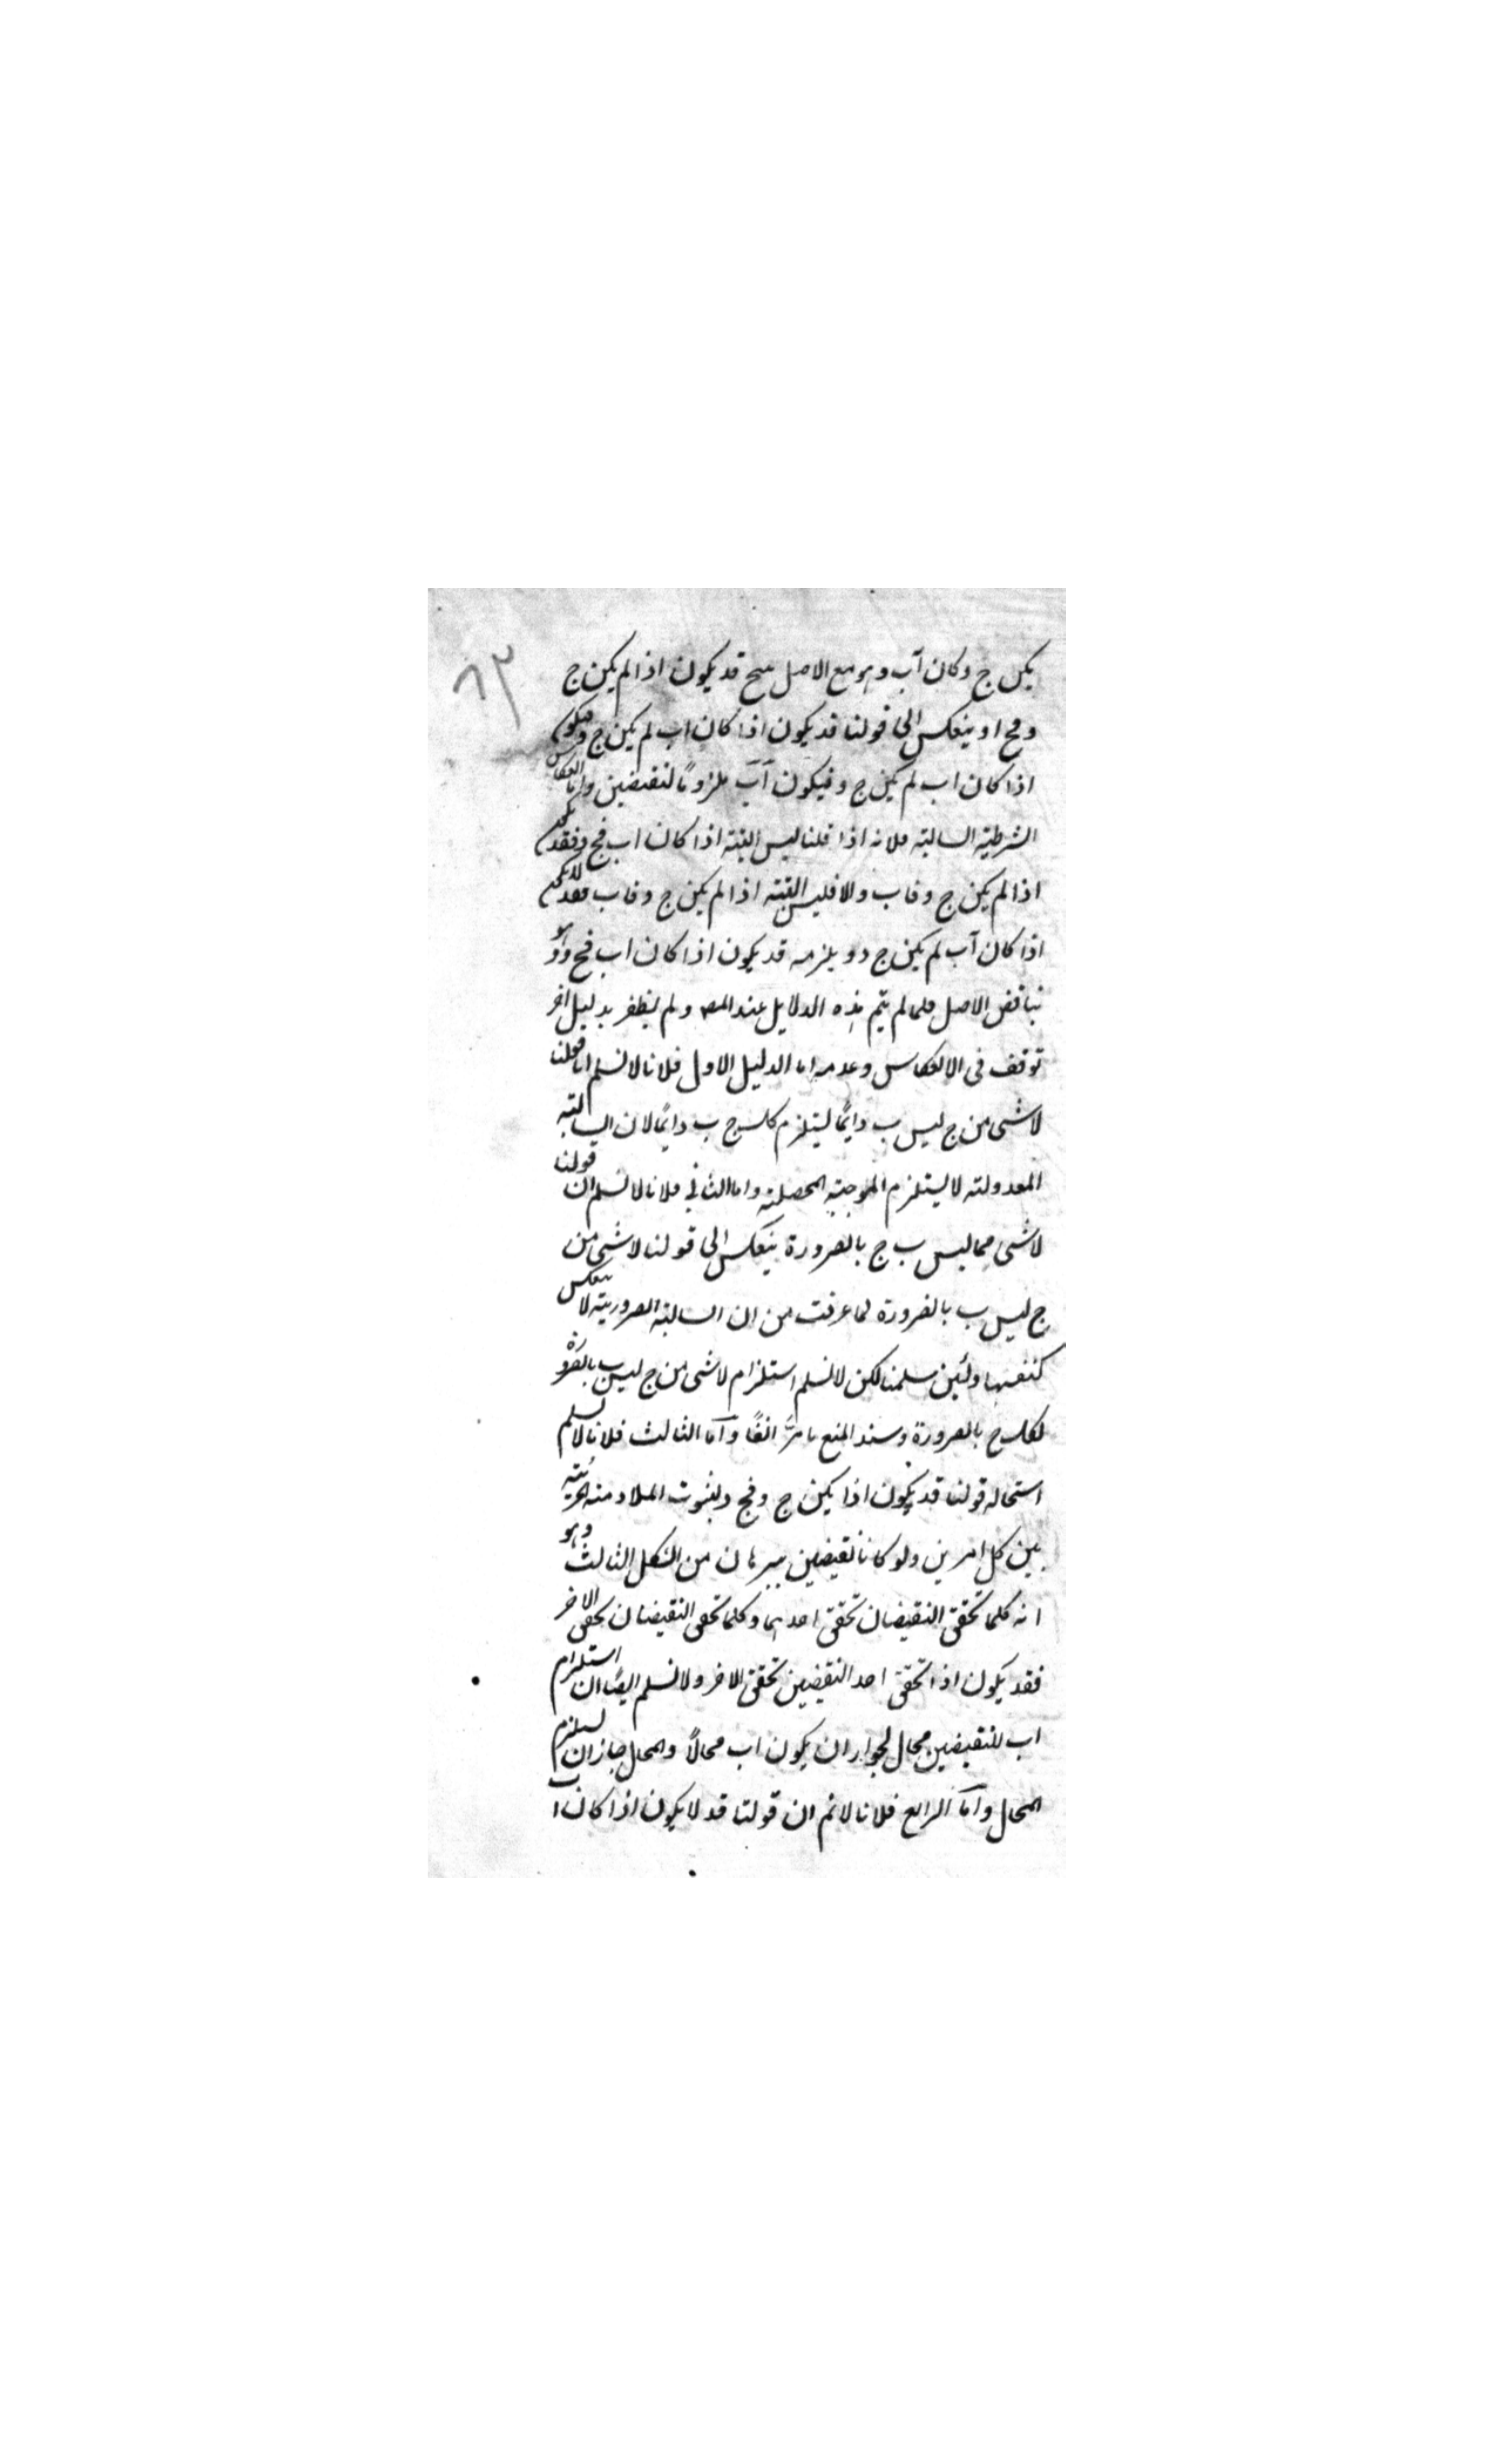 ٦٣
يكن ج د كان آب وهو مع الاصل ينتج قد يكون اذا لم يكن ج
د فج د او ينعكس الى قولنا قد يكون اذا كان اب لم يكن ج د فيكون
اذا كان اب لم يكن ج د فيكون آب ملزومًا لنقيضين واما انعكاس
الشرطية السالبة فلانه اذا قلنا ليس البتة اذا كان اب فج د فقد يكون
اذا لم يكن ج د فاب والا فليس البتة اذا لم يكن ج د فاب فقد لا يكون
اذا كان آب لم يكن ج د ويلزمه قد يكون اذا كان اب فج د وهو
يناقض الاصل فلما لم يتم هذه الدلايل عند المص ولم يظفر بدليل اخر
توقف فى الانعكاس وعدمه اما الدليل الاول فلانا لا نسلم ان قولنا
لا شى من ج ليس ب دايمًا ليستلزم كل ج ب دايمًا لان السالبة
المعدولة لا يستلزم الموجبة المحصلة واما الثانى فلانا لا نسلم ان قولنا
لا شى مما ليس ب ج بالضرورة ينعكس الى قولنا لا شى من
ج ليس ب بالضرورة لما عرفت من ان السالبة الضرورية لا ينعكس
كنفسها ولئن سلمنا لكن لا نسلم استلزام لا شى من ج ليس ب بالضرورة
لكل ج ب بالضرورة وسند المنع ما مرّ انفًا وآما الثالث فلانا لا نسلم
استحاله قولنا قد يكون اذا يكن ج د فج د لثبوت الملازمة الجزئية
بين كل امرين ولو كانا نقيضين ببرهان من الشكل الثالث وهو
انه كلما تحقق النقيضان تحقق احدهما وكلما تحقق النقيضان تحقق الاخر
فقد يكون اذا تحقق احد النقيضين تحقق الاخر ولا نسلم ايضًا ان استلزام
اب للنقيضين محال لجواز ان يكون اب محالاً والمحال جاز ان يستلزم
المحال وآما الرابع فلانا لانم ان قولنا قد لا يكون اذا كان اب